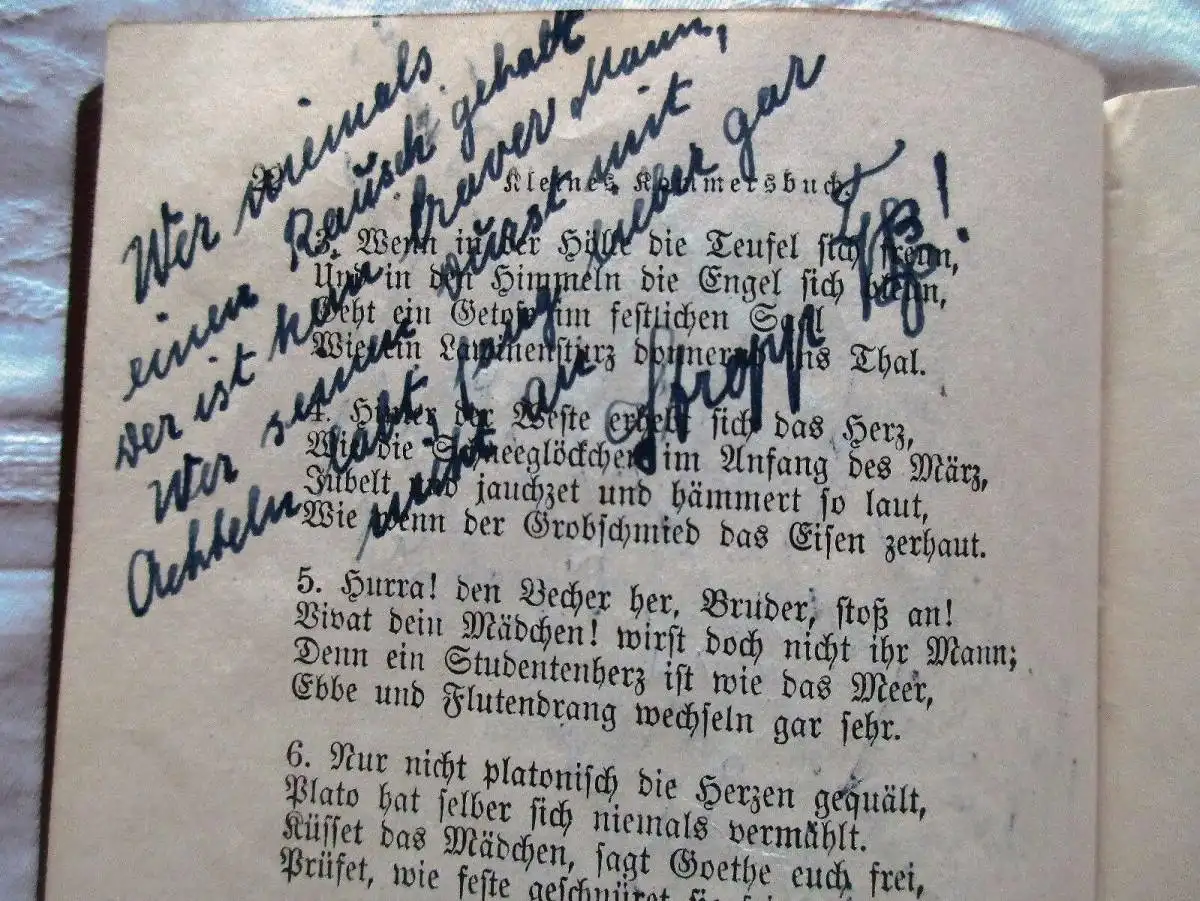 Wer niemals
einen Rausch gehabt
der ist kein braver Mann,
Wer seinen Durst mit
Achteln labt, fang lieber gar
nicht an
Kleines Kommersbuch.
3. Wenn in der Hölle die Teufel sich freun,
Und in den Himmeln die Engel sich
Geht ein Getose im festlichen Saal
Wie ein Lawinensturz donnernd ins Thal.
4. Hinter der Weste erhebt sich das Herz,
Wie die Schneeglöckchen im Anfang des März,
Jubelt und jauchzet und hämmert so laut,
Wie wenn der Grobschmied das Eisen zerhaut.
5. Hurra! den Becher her, Bruder, stoß an!
Vivat dein Mädchen! wirst doch nicht ihr Mann;
Denn ein Studentenherz ist wie das Meer,
Ebbe und Flutendrang wechseln gar sehr.
6. Nur nicht platonisch die Herzen gequält,
Plato hat selber sich niemals vermählt.
Küsset das Mädchen, sagt Goethe euch frei,
Prüfet, wie feste geschnüret sie sei